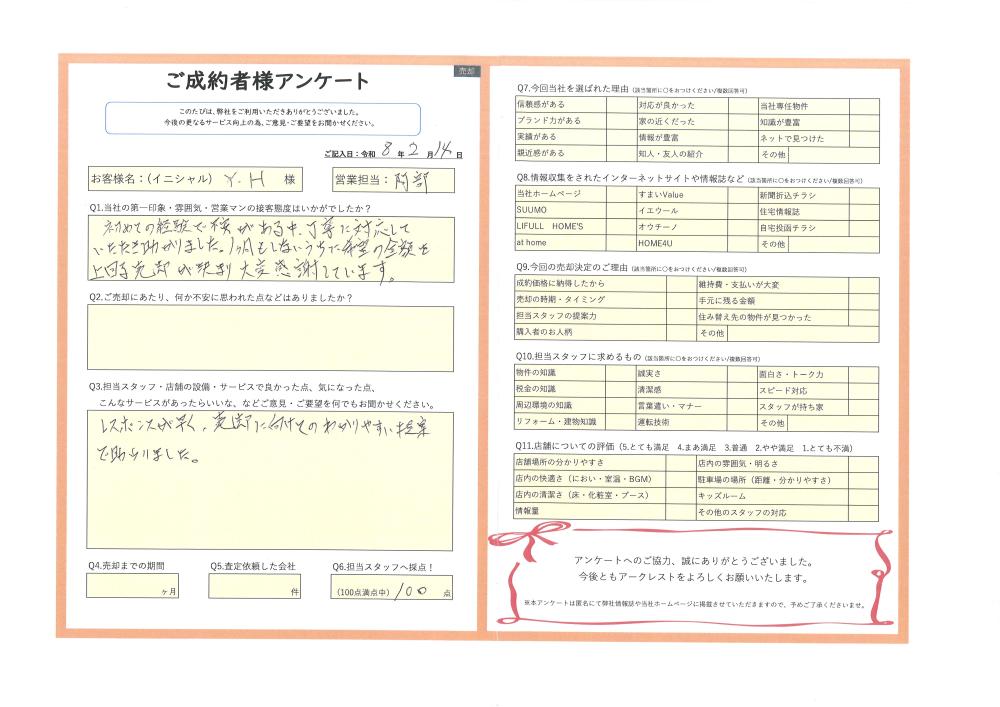 売却
ご成約者様アンケート
このたびは、弊社をご利用いただきありがとうございました。
今後の更なるサービス向上の為、ご意見・ご要望をお聞かせください。
ご記入日：令和 8 年 2 月 14 日
お客様名：(イニシャル) Y.H 様
営業担当：阿部
Q1.当社の第一印象・雰囲気・営業マンの接客態度はいかがでしたか？
初めての経験で様々ある中、丁寧に対応して
いただき助かりました。1ヶ月もしないうちに希望の金額を
上回る売却が決まり大変感謝しています。
Q2.ご売却にあたり、何か不安に思われた点などはありましたか？
Q3.担当スタッフ・店舗の設備・サービスで良かった点、気になった点、
こんなサービスがあったらいいな、などご意見・ご要望を何でもお聞かせください。
レスポンスが早く、売却に向けてのわかりやすい提案
で助かりました。
Q4.売却までの期間
ヶ月
Q5.査定依頼した会社
件
Q6.担当スタッフへ採点！
(100点満点中) 100 点
Q7.今回当社を選ばれた理由 (該当箇所に〇をおつけください/複数回答可)
信頼感がある 対応が良かった 当社専任物件
ブランド力がある 家の近くだった 知識が豊富
実績がある 情報が豊富 ネットで見つけた
親近感がある 知人・友人の紹介 その他
Q8.情報収集をされたインターネットサイトや情報誌など (該当箇所に〇をおつけください/複数回答可)
当社ホームページ すまいValue 新聞折込チラシ
SUUMO イエウール 住宅情報誌
LIFULL HOME'S オウチーノ 自宅投函チラシ
at home HOME4U その他
Q9.今回の売却決定のご理由 (該当箇所に〇をおつけください/複数回答可)
成約価格に納得したから 維持費・支払いが大変
売却の時期・タイミング 手元に残る金額
担当スタッフの提案力 住み替え先の物件が見つかった
購入者のお人柄 その他
Q10.担当スタッフに求めるもの (該当箇所に〇をおつけください/複数回答可)
物件の知識 誠実さ 面白さ・トーク力
税金の知識 清潔感 スピード対応
周辺環境の知識 言葉遣い・マナー スタッフが持ち家
リフォーム・建物知識 運転技術 その他
Q11.店舗についての評価 (5.とても満足 4.まあ満足 3.普通 2.やや満足 1.とても不満)
店舗場所の分かりやすさ 店内の雰囲気・明るさ
店内の快適さ（におい・室温・BGM） 駐車場の場所（距離・分かりやすさ）
店内の清潔さ（床・化粧室・ブース） キッズルーム
情報量 その他のスタッフの対応
アンケートへのご協力、誠にありがとうございました。
今後ともアークレストをよろしくお願いいたします。
※本アンケートは匿名にて弊社情報誌や当社ホームページに掲載させていただきますので、予めご了承くださいませ。